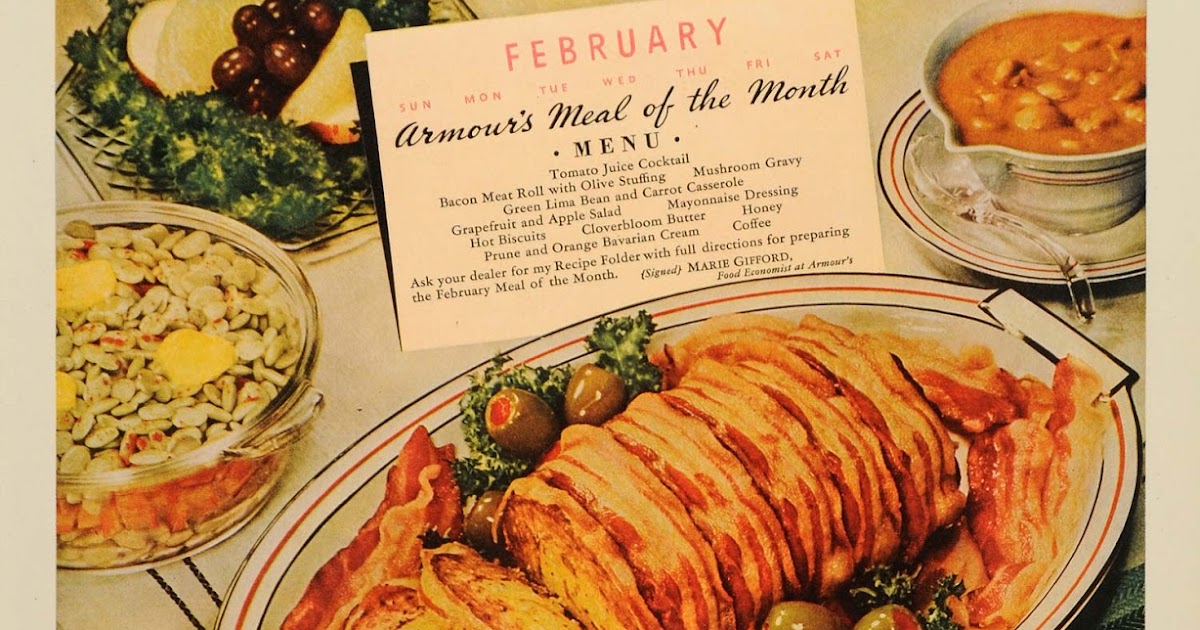 FEBRUARY
SUN MON TUE WED THU FRI SAT
Armour's Meal of the Month
• MENU •
Tomato Juice Cocktail
Bacon Meat Roll with Olive Stuffing Mushroom Gravy
Green Lima Bean and Carrot Casserole
Grapefruit and Apple Salad Mayonnaise Dressing
Hot Biscuits Cloverbloom Butter Honey
Prune and Orange Bavarian Cream Coffee
Ask your dealer for my Recipe Folder with full directions for preparing
the February Meal of the Month. {Signed} MARIE GIFFORD,
Food Economist at Armour's